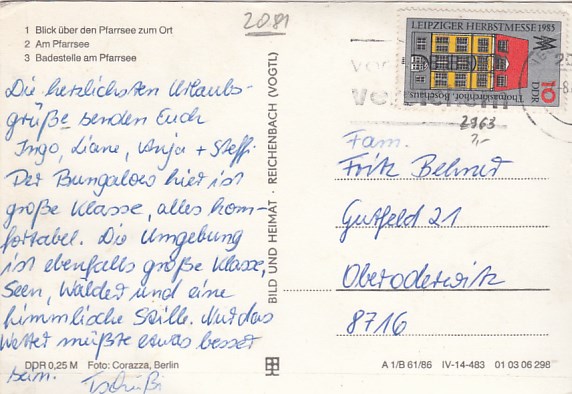 2081
1 Blick über den Pfarrsee zum Ort
2 Am Pfarrsee
3 Badestelle am Pfarrsee
Die herzlichsten Urlaubs-
grüße senden Euch
Ingo, Liane, Anja + Steffi.
Der Bungalow hier ist
große Klasse, alles kom-
fortabel. Die Umgebung
ist ebenfalls große Klasse,
Seen, Wälder und eine
himmlische Stille. Nur das
Wetter müßte etwas besser
sein. Tschüßi
DDR 0,25 M Foto: Corazza, Berlin
BILD UND HEIMAT · REICHENBACH (VOGTL)
LEIPZIGER HERBSTMESSE 1985
Thomaskirchhof, Bosehaus
10
DDR
2963
7,-
Fam.
Fritz Behner
Gutfeld 21
Oberoderwitz
8716
A 1/B 61/86 IV-14-483 01 03 06 298